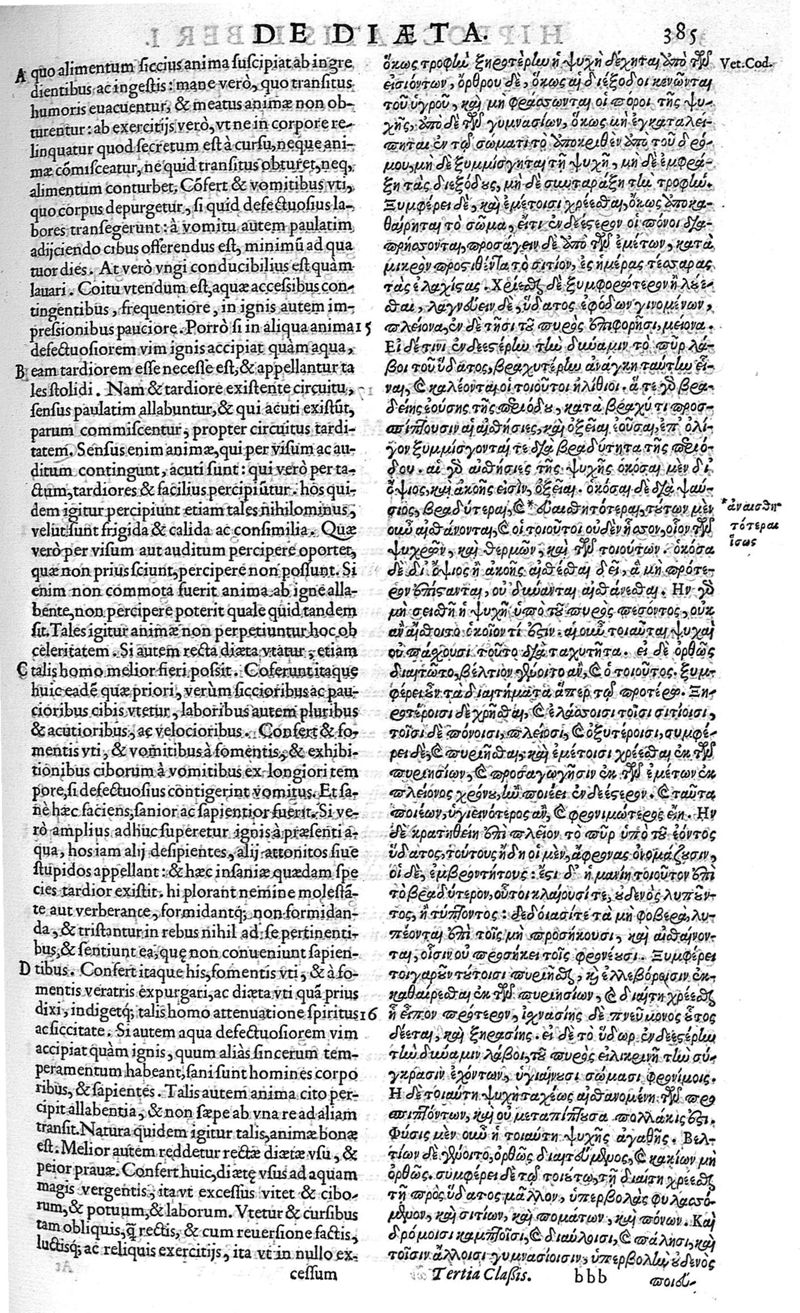 DE DIÆTA.
385
A quo alimentum siccius anima suscipiat ab ingre
dientibus ac ingestis: mane verò, quo transitus
humoris euacuentur, & meatus animæ non ob-
turentur: ab exercitijs verò, vt ne in corpore re-
linquatur quod secretum est à cursu, neque ani-
mæ cōmisceatur, ne quid transitus obturet, neq,
alimentum conturbet. Cōfert & vomitibus vti,
quo corpus depurgetur, si quid defectuosius la-
bores transegerunt: à vomitu autem paulatim
adijciendo cibus offerendus est, minimū ad qua
tuor dies. At verò vngi conducibilius est quàm
lauari. Coitu vtendum est, aquæ accessibus con-
tingentibus, frequentiore, in ignis autem im-
pressionibus pauciore. Porrò si in aliqua anima 15
defectuosiorem vim ignis accipiat quàm aqua,
B eam tardiorem esse necesse est, & appellantur ta
les stolidi. Nam & tardiore existente circuitu,
sensus paulatim allabuntur, & qui acuti existūt,
parum commiscentur, propter circuitus tardi-
tatem. Sensus enim animæ, qui per visum ac au-
ditum contingunt, acuti sunt: qui verò per ta-
ctum, tardiores & facilius percipiūtur. hos qui-
dem igitur percipiunt etiam tales nihilominus,
velut sunt frigida & calida ac consimilia. Quæ
verò per visum aut auditum percipere oportet,
quæ non prius sciunt, percipere non possunt. Si
enim non commota fuerit anima ab igne alla-
bente, non percipere poterit quale quid tandem
sit. Tales igitur animæ non perpetiuntur hoc ob
celeritatem. Si autem recta diæta vtatur, etiam
C talis homo melior fieri possit. Cōferunt itaque
huic eadē quæ priori, verùm siccioribus ac pau-
cioribus cibis vtetur, laboribus autem pluribus
& acutioribus, ac velocioribus. Confert & fo-
mentis vti, & vomitibus à fomentis, & exhibi-
tionibus ciborum à vomitibus ex longiori tem
pore, si defectuosius contigerint vomitus. Et sa-
nè hæc faciens, sanior ac sapientior fuerit. Si ve-
rò amplius adhuc superetur ignis à præsenti a-
qua, hos iam alij desipientes, alij attonitos siue
stupidos appellant: & hæc insaniæ quædam spe
cies tardior existit. hi plorant nemine molestā-
te aut verberante, formidantq; non formidan-
da, & tristantur in rebus nihil ad se pertinenti-
bus, & sentiunt ea, quę non conueniunt sapien-
D tibus. Confert itaque his, fomentis vti, & à fo-
mentis veratris expurgari, ac diæta vti quā prius
dixi, indigetq; talis homo attenuatione spiritus 16
ac siccitate. Si autem aqua defectuosiorem vim
accipiat quàm ignis, quum aliàs sincerum tem-
peramentum habeant, sani sunt homines corpo
ribus, & sapientes. Talis autem anima cito per-
cipit allabentia, & non sæpe ab vna re ad aliam
transit. Natura quidem igitur talis, animæ bonæ
est. Melior autem reddetur rectæ diætæ vsu, &
peior prauæ. Confert huic, diætę vsus ad aquam
magis vergentis, ita vt excessus vitet & cibo-
rum, & potuum, & laborum. Vtetur & cursibus
tam obliquis, q̄ rectis, & cum reuersione factis,
luctisq; ac reliquis exercitijs, ita vt in nullo ex-
cessum
ὅκως τροφὴν ξηροτέρην ἡ ψυχὴ δέχηται ὑπὸ τῶν
εἰσιόντων, ὄρθρου δὲ, ὅκως αἱ διέξοδοι κενῶνται
τοῦ ὑγροῦ, καὶ μὴ φράσσωνται οἱ πόροι τῆς ψυ-
χῆς, ὑπὸ δὲ τῶν γυμνασίων, ὅκως μὴ ἐγκαταλεί-
πηται ἐν τῷ σώματι τὸ ὑποκριθὲν ὑπὸ τοῦ δρό-
μου, μὴ δὲ ξυμμίσγηται τῇ ψυχῇ, μὴ δὲ ἐμφρά-
ξῃ τὰς διεξόδους, μὴ δὲ συνταράξῃ τὴν τροφήν.
Ξυμφέρει δὲ, καὶ ἐμέτοισι χρέεσθαι, ὅκως ὑποκα-
θαίρηται τὸ σῶμα, εἴ τι ἐνδεέστερον οἱ πόνοι δια-
πρήσσονται, προσάγειν δὲ ὑπὸ τῶν ἐμέτων, κατὰ
μικρὸν προστιθέντα τὸ σιτίον, ἐς ἡμέρας τέσσαρας
τὰς ἐλαχίστας. Χρίεσθαι δὲ ξυμφορώτερον ἢ λούε-
σθαι, λαγνεύειν δὲ, ὕδατος ἐφόδων γινομένων,
πλείονα, ἐν δὲ τῇσι τοῦ πυρὸς ἐπιφορῇσι, μείονα.
Εἰ δέ τινι ἐνδεεστέρην τὴν δύναμιν τὸ πῦρ λά-
βοι τοῦ ὕδατος, βραχυτέρην ἀνάγκη ταύτην εἶ-
ναι, καὶ καλέονται οἱ τοιοῦτοι ἠλίθιοι. ἅτε γὰρ βρα-
δείης ἐούσης τῆς περιόδου, κατὰ βραχύ τι προσ-
πίπτουσιν αἱ αἰσθήσιες, καὶ ὀξεῖαι ἐοῦσαι, ἐπ' ὀλί-
γον ξυμμίσγονταί τε διὰ βραδυτῆτα τῆς περιό-
δου. αἱ γὰρ αἰσθήσιες τῆς ψυχῆς ὁκόσαι μὲν δι'
ὄψιος, καὶ ἀκοῆς εἰσιν, ὀξεῖαι. ὁκόσαι δὲ διὰ ψαύ-
σιος, βραδύτεραι, καὶ * εὐαισθητότεραι, τούτων μὲν
οὖν αἰσθάνονται, καὶ οἱ τοιοῦτοι οὐδὲν ἧσσον, οἷον τῶν
ψυχρῶν, καὶ θερμῶν, καὶ τῶν τοιούτων. ὁκόσα
δὲ δι' ὄψιος ἢ ἀκοῆς αἰσθέσθαι δεῖ, ἃ μὴ πρότε-
ρον ἐπίστανται, οὐ δύνανται αἰσθάνεσθαι. Ἢν γὰρ
μὴ σεισθῇ ἡ ψυχὴ ὑπὸ τοῦ πυρὸς πεσόντος, οὐκ
ἂν αἴσθοιτο ὁκοῖόν τι ἐστιν. αἱ οὖν τοιαῦται ψυχαὶ
οὐ πάσχουσι τοῦτο διὰ ταχυτῆτα. εἰ δὲ ὀρθῶς
διαιτῷτο, βέλτιον γένοιτο ἂν, καὶ ὁ τοιοῦτος. ξυμ-
φέρει οὖν τὰ διαιτήματα ἅπερ τῷ προτέρῳ. Ξη-
ροτέροισι δὲ χρῆσθαι, καὶ ἐλάσσοσι τοῖσι σιτίοισι,
τοῖσι δὲ πόνοισι, πλείοσι, καὶ ὀξυτέροισι, συμφέ-
ρει δὲ, καὶ πυριῆσθαι, καὶ ἐμέτοισι χρέεσθαι ἐκ τῶν
πυριησίων, καὶ προσαγωγῇσιν ἐκ τῶν ἐμέτων ἐκ
πλείονος χρόνου, ἢν ποιέει ἐνδεέστερον. καὶ ταῦτα
ποιέων, ὑγιεινότερος ἂν, καὶ φρονιμώτερος εἴη. Ἢν
δὲ κρατηθείη ἐπὶ πλεῖον τὸ πῦρ ὑπὸ τοῦ ἐόντος
ὕδατος, τούτους ἤδη οἱ μὲν, ἄφρονας ὀνομάζουσιν,
οἱ δὲ, ἐμβροντήτους: ἔστι δ' ἡ μανίη τοιούτων ἐπὶ
τὸ βραδύτερον, οὗτοι κλαίουσί τε, οὐδενὸς λυπέον-
τος, ἢ τύπτοντος: δεδοίασί τε τὰ μὴ φοβερὰ, λυ-
πέονται ἐπὶ τοῖς μὴ προσήκουσι, καὶ αἰσθάνον-
ται, οἷσιν οὐ προσήκει τοῖς φρονέουσι. Ξυμφέρει
τοιγαροῦν τούτοισι πυριῆσθαι, καὶ ἐλλεβόροισιν ἐκ-
καθαίρεσθαι ἐκ τῶν πυριησίων, καὶ διαίτῃ χρέεσθαι
ᾗ εἶπον πρότερον, ἰσχνασίης δὲ πνεύμονος οὗτος
δέεται, καὶ ξηρασίης. εἰ δὲ τὸ ὕδωρ ἐνδεεστέρην
τὴν δύναμιν λάβοι, τοῦ πυρὸς εἰλικρινῆ τὴν σύγ-
κρασιν ἐχόντων, ὑγιαίνουσι σώμασι φρονίμοις.
Ἡ δὲ τοιαύτη ψυχὴ ταχέως αἰσθανομένη τῶν προσ
πιπτόντων, καὶ οὐ μεταπίπτουσα πολλάκις ἐστί.
Φύσις μὲν οὖν ἡ τοιαύτη ψυχῆς ἀγαθῆς. Βελ-
τίων δὲ γένοιτο, ὀρθῶς διαιτούμενος, καὶ κακίων μὴ
ὀρθῶς. συμφέρει δὲ τῷ τοιούτῳ, τῇ διαίτῃ χρέεσθαι
τῇ πρὸς ὕδατος μᾶλλον, ὑπερβολὰς φυλασσό-
μενον, καὶ σιτίων, καὶ πομάτων, καὶ πόνων. Καὶ
δρόμοισι καμπτοῖσι, καὶ διαύλοισι, καὶ πάλῃσι, καὶ
τοῖσιν ἄλλοισι γυμνασίοισιν, ὑπερβολὴν οὐδενὸς
Tertia Classis. bbb ποιού-
Vet. Cod.
*ἀναισθη
τότεραι
ἴσως